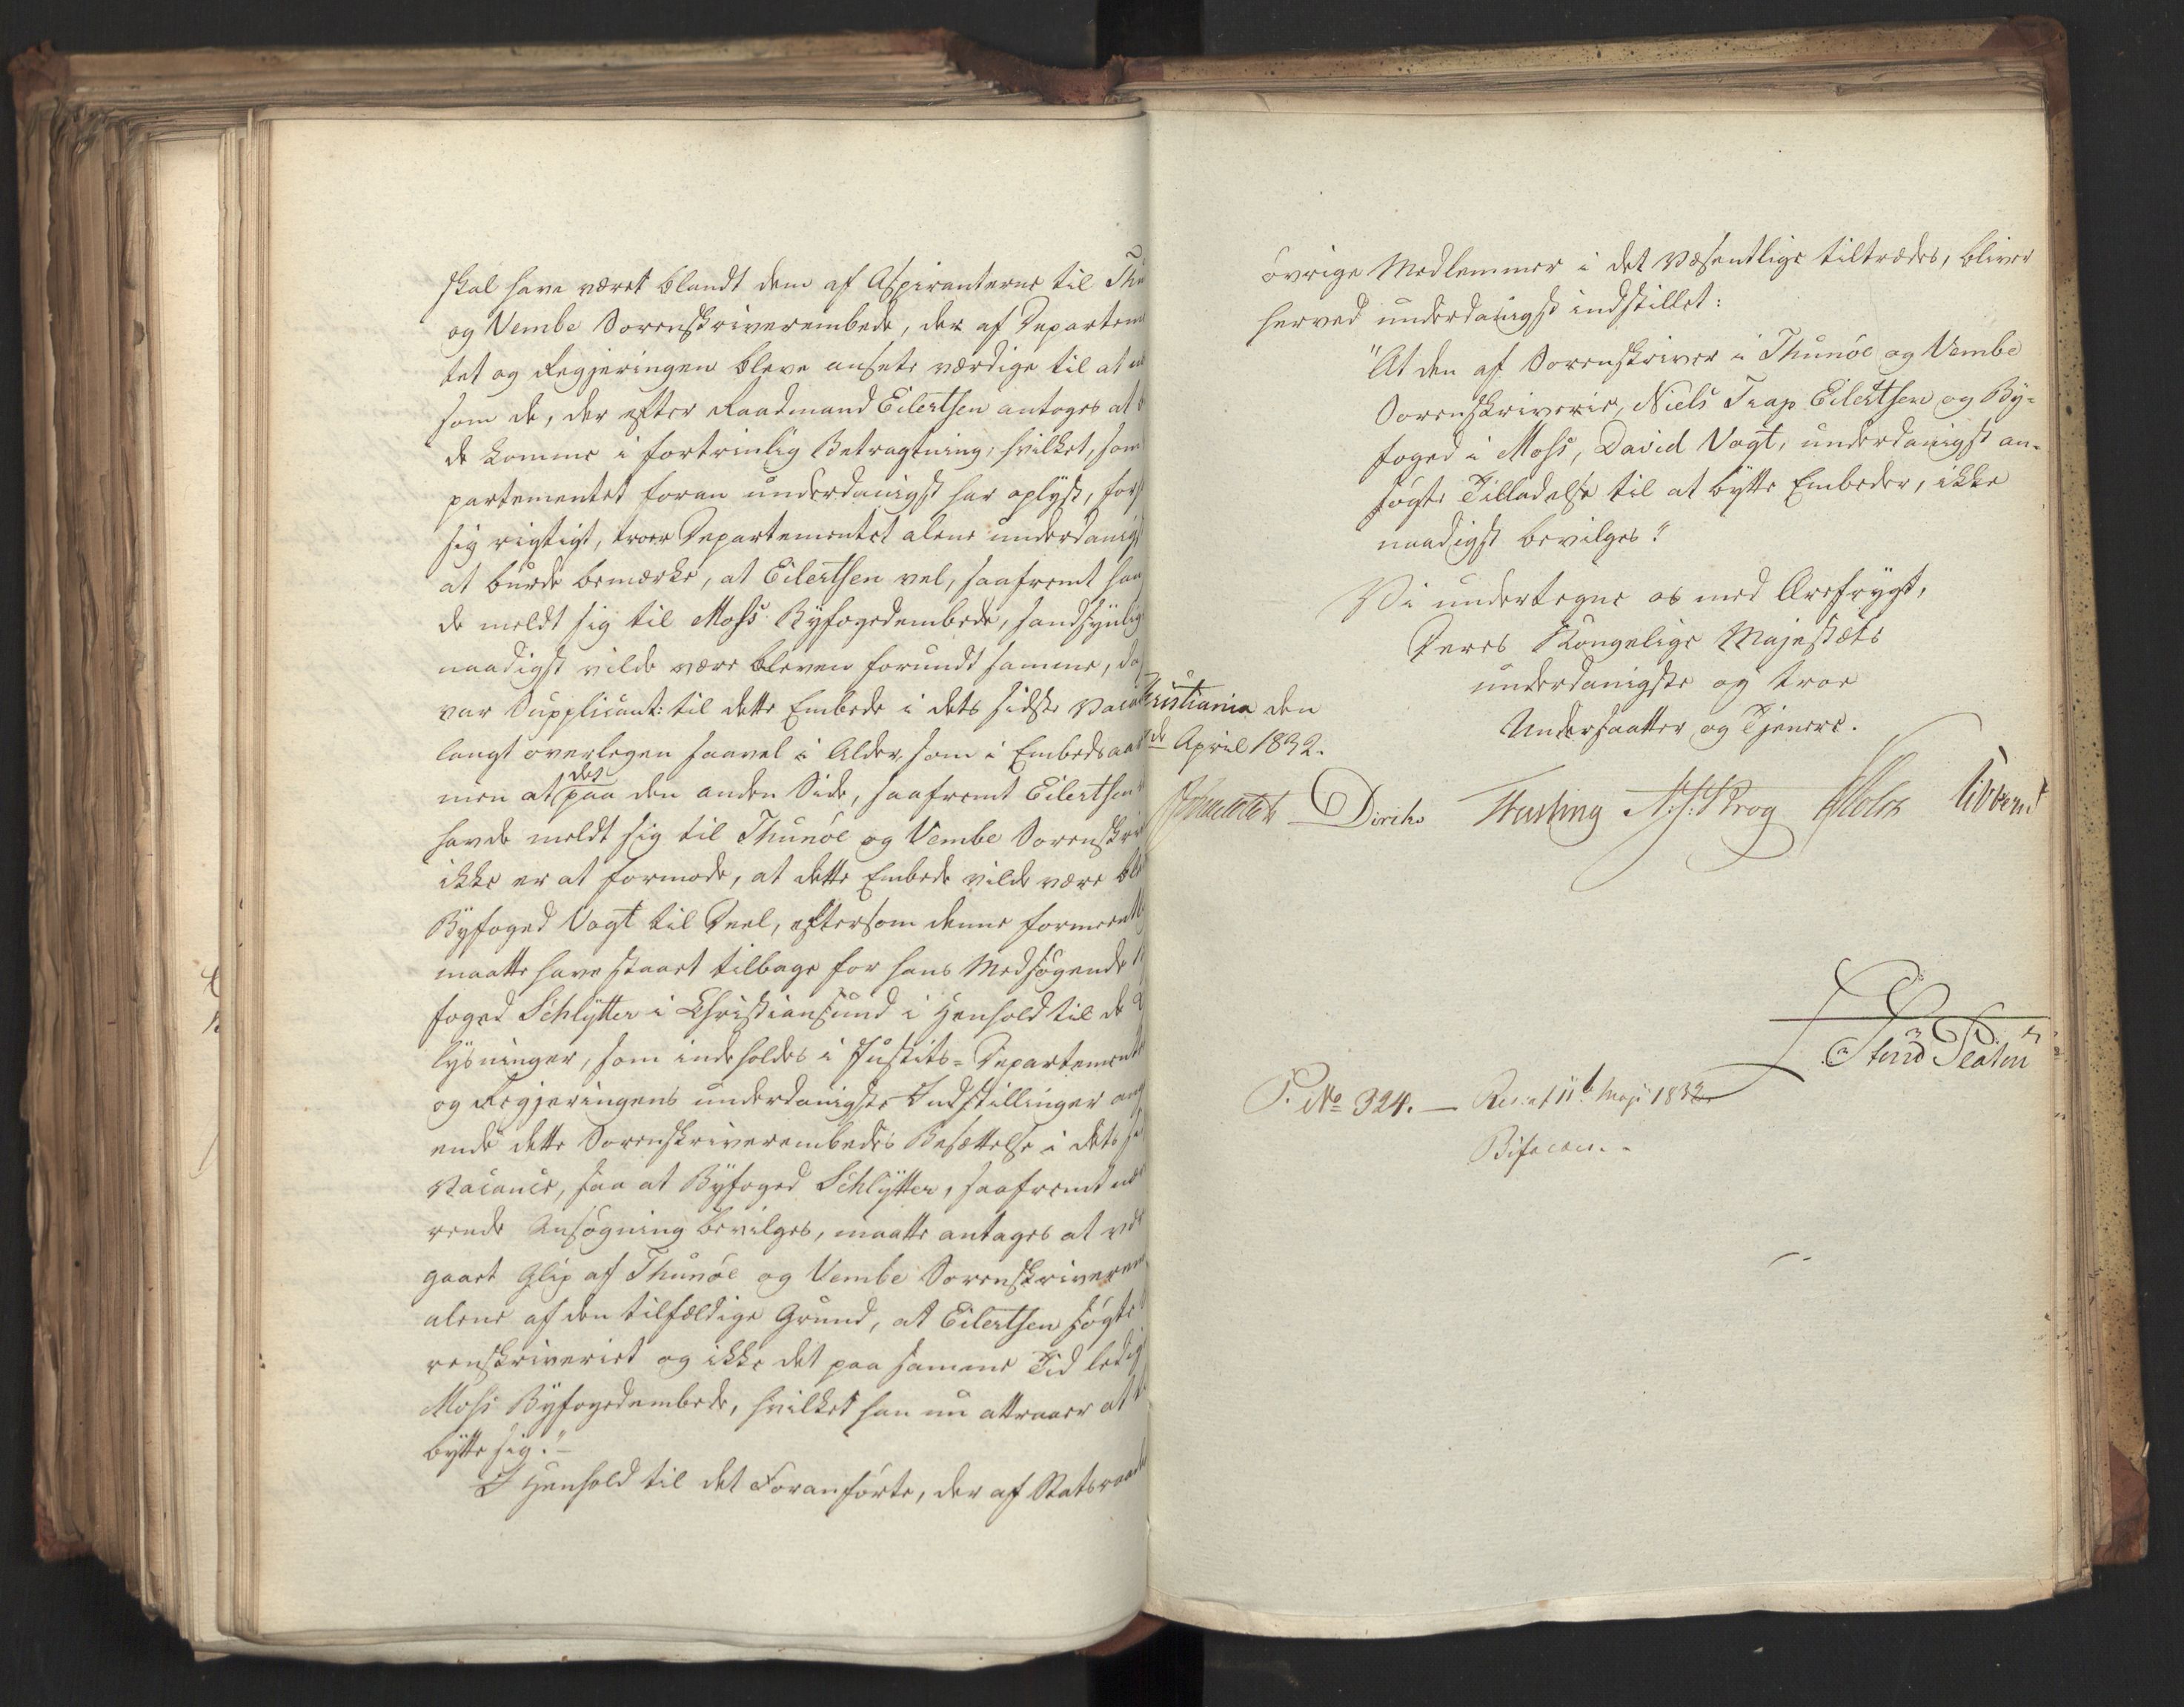 skal have været blandt dem af Aspiranterne til Thu
og Vembe Sorenskriverembede, der af Departem
tet og Regjeringen bleve ansete værdige til at
som de, der efter Raadmand Eilertsen antoges at
de komme i fortrinlig Betragtning, hvilket, som
partementet foran underdanigst har oplyst, forh
sig rigtigt, troer Departementet alene underdanigst
at burde bemærke, at Eilertsen vel, saafremt han
de meldt sig til Moss Byfogedembede, sandsynlig
naadigst vilde være bleven forundt samme, da
var Supplicant: til dette Embede i dets sidste Vacan
langt overlegen saavel i Alder, som i Embedsaar
men at des paa den anden Side, saafremt Eilertsen
havde meldt sig til Thunøe og Vembe Sorenskri
ikke er at formode, at dette Embede vilde være ble
Byfoged Vogt til Deel, eftersom denne formeentl
maatte have staaet tilbage for hans Medsøgende
foged Schlytter i Christiansund i Henhold til de
lysninger, som indeholdes i Justits-Departement
og Regjeringens underdanigste Indstillinger ang
ende dette Sorenskriverembedes Besættelse i dets
Vacance, saa at Byfoged Schlytter, saafremt nær
rende Ansøgning bevilges, maatte antages at være
gaaet Glip af Thunøe og Vembe Sorenskriverem
alene af den tilfældige Grund, at Eilertsen søgte
renskriveriet og ikke det paa samme Tid ledig
Moss Byfogedembede, hvilket han nu attraaer at
bytte sig."
I Henhold til det Foranførte, der af Statsraade
øvrige Medlemmer i det Væsentlige tiltrædes, bliver
herved underdanigst indstillet:
"At den af Sorenskriver i Thunøe og Vembe
Sorenskriverie, Niels Trap Eilertsen og By-
foged i Moss, David Vogt, underdanigst an-
søgte Tilladelse til at bytte Embeder, ikke
naadigst bevilges."
Vi undertegne os med Ærefrygt,
Deres Kongelige Majestæts
underdanigste og troe
Undersaatter og Tjenere.
Christiania den
April 1832.
Diriks Fasting H. Krog Holst Vibe
P. No 324. — Res: af 11te Maji 1832
Bifaldes.